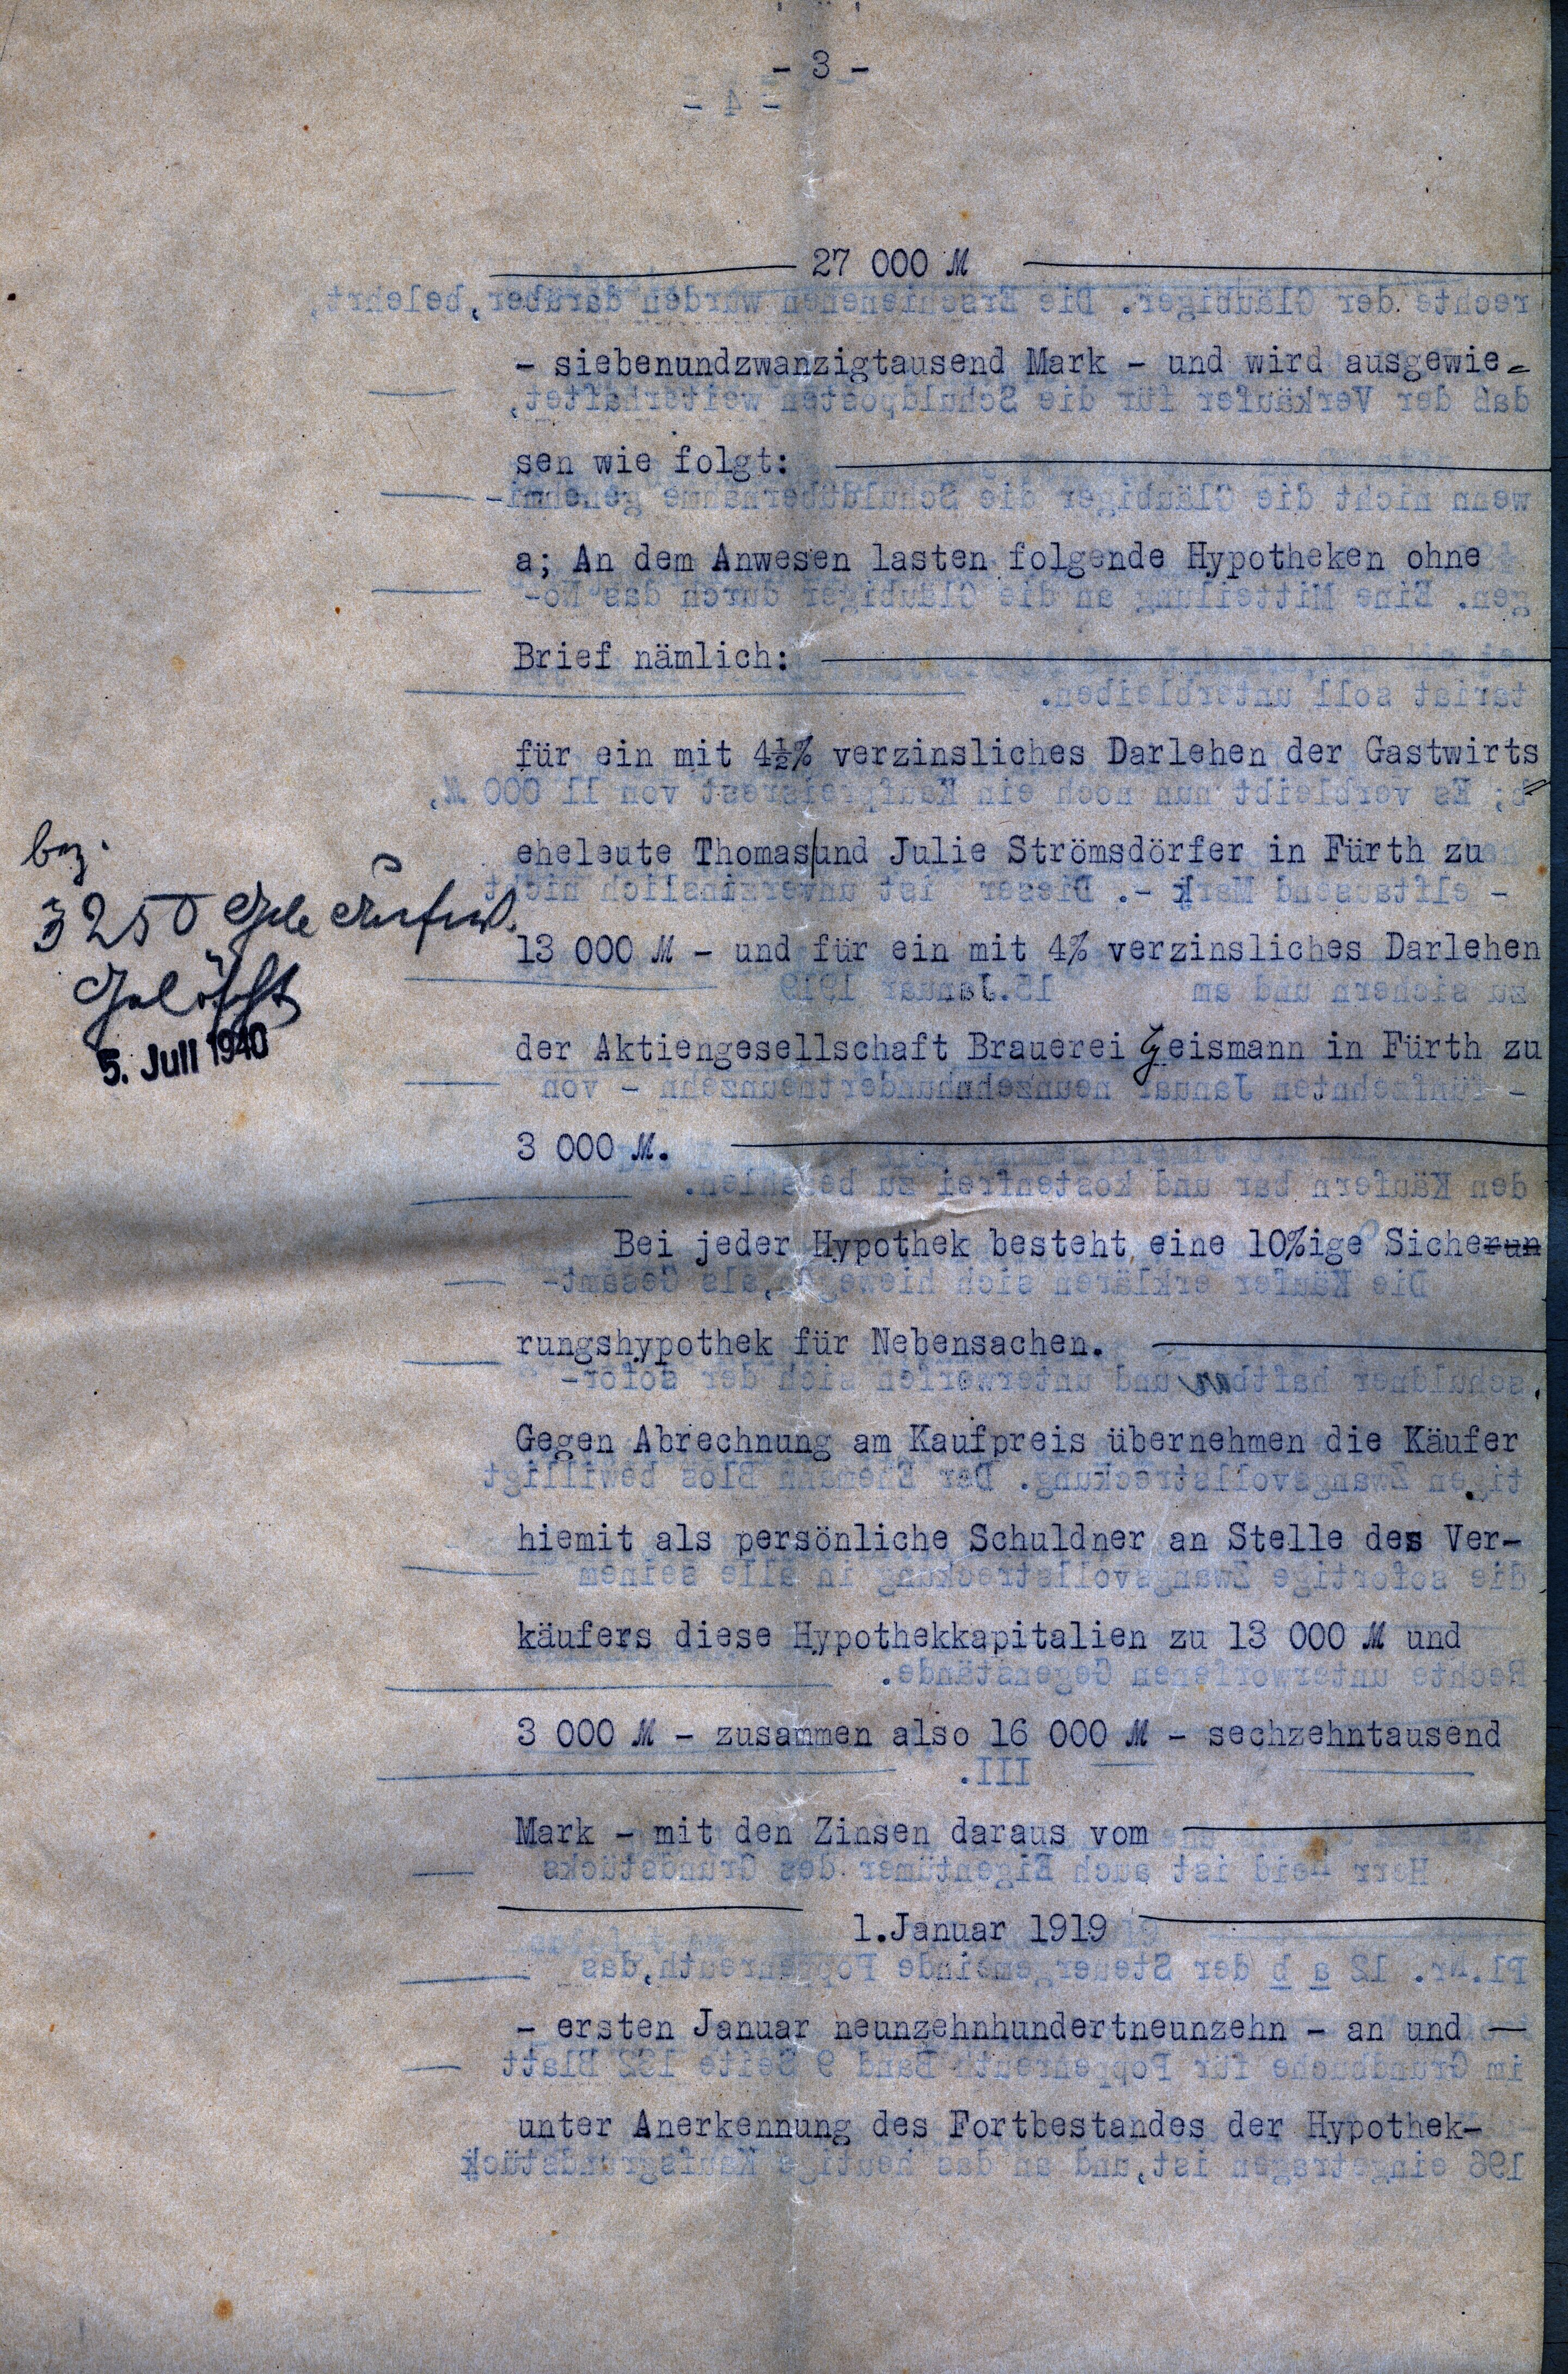 - 3 -
27 000 M
- siebenundzwanzigtausend Mark - und wird ausgewie=
sen wie folgt:
a; An dem Anwesen lasten folgende Hypotheken ohne
Brief nämlich:
für ein mit 4½% verzinsliches Darlehen der Gastwirts=
eheleute Thomas und Julie Strömsdörfer in Fürth zu
13 000 M - und für ein mit 4% verzinsliches Darlehen
der Aktiengesellschaft Brauerei Geismann in Fürth zu
3 000 M.
Bei jeder Hypothek besteht eine 10%ige Sicherun
rungshypothek für Nebensachen.
Gegen Abrechnung am Kaufpreis übernehmen die Käufer
hiemit als persönliche Schuldner an Stelle des Ver-
käufers diese Hypothekkapitalien zu 13 000 M und
3 000 M - zusammen also 16 000 M - sechzehntausend
Mark - mit den Zinsen daraus vom
1.Januar 1919
- ersten Januar neunzehnhundertneunzehn - an und —
unter Anerkennung des Fortbestandes der Hypothek-
bez.
3250 GM
Gelöscht
5. Juli 1940